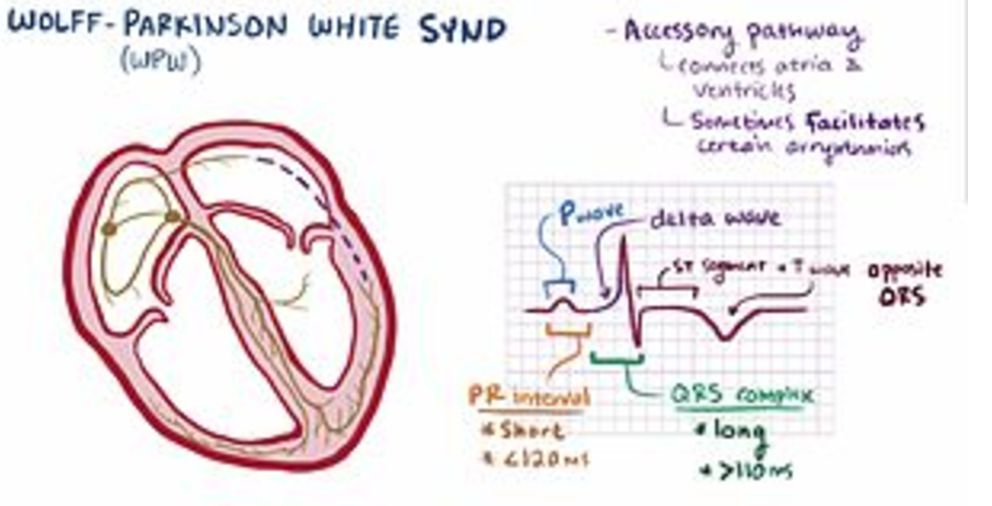 WOLFF-PARKINSON WHITE SYND
(WPW)
- Accessory pathway
connects atria &
ventricles
Sometimes facilitates
certain arrythmias
P wave
delta wave
ST segment + T wave opposite
QRS
PR interval
* Short
* <120ms
QRS complex
* long
* >110ms